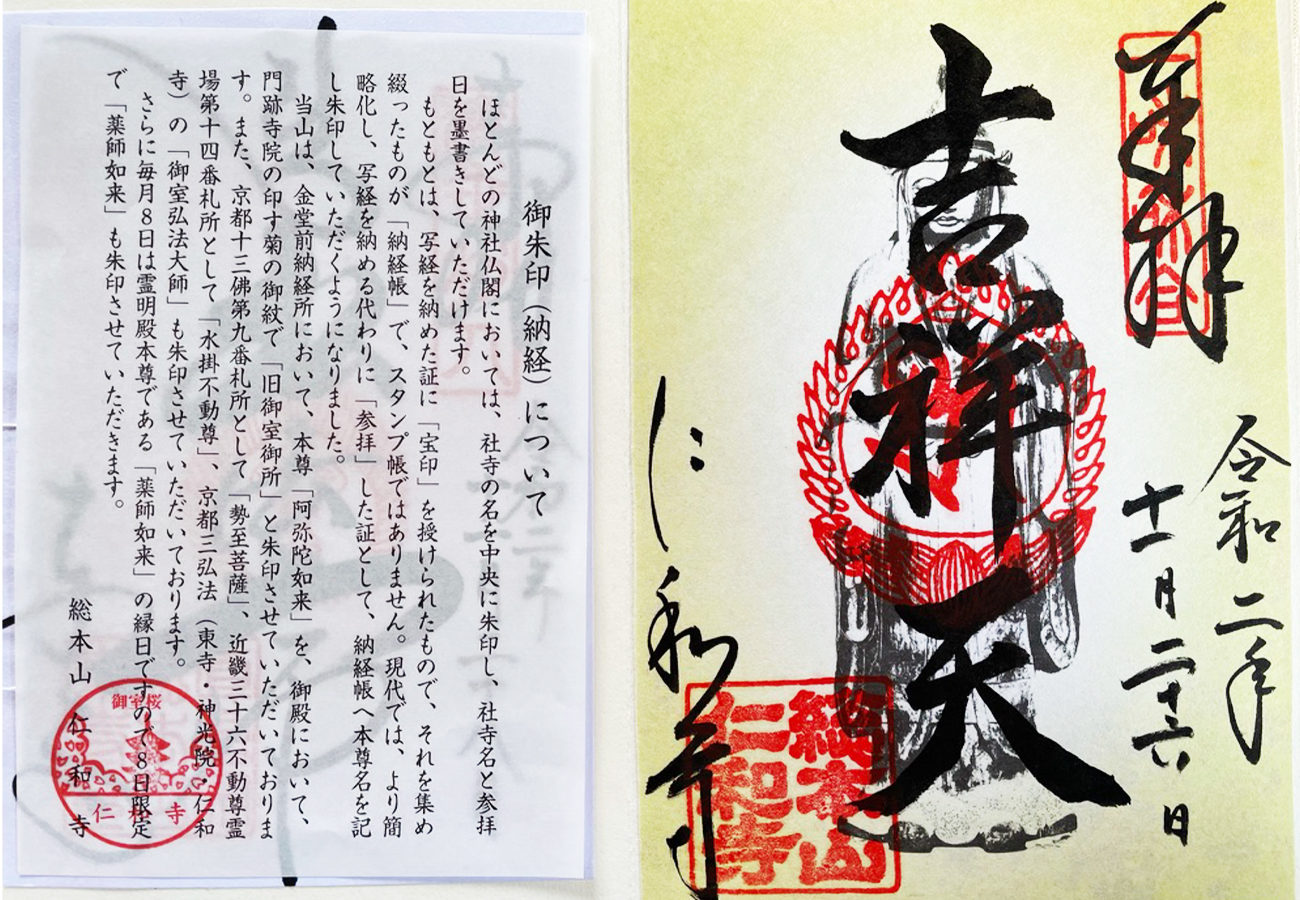 奉拝
令和二年
十一月二十六日
吉祥天
仁和寺
総本山
仁和寺
御朱印（納経）について
ほとんどの神社仏閣においては、社寺の名を中央に朱印し、社寺名と参拝
日を墨書きしていただけます。
もともとは、写経を納めた証に「宝印」を授けられたもので、それを集め
綴ったものが「納経帳」で、スタンプ帳ではありません。現代では、より簡
略化し、写経を納める代わりに「参拝」した証として、納経帳へ本尊名を記
し朱印していただくようになりました。
当山は、金堂前納経所において、本尊「阿弥陀如来」を、御殿において、
門跡寺院の印す菊の御紋で「旧御室御所」と朱印させていただいておりま
す。また、京都十三佛第九番札所として「勢至菩薩」、近畿三十六不動尊霊
場第十四番札所として「水掛不動尊」、京都三弘法（東寺・神光院・仁和
寺）の「御室弘法大師」も朱印させていただいております。
さらに毎月８日は霊明殿本尊である「薬師如来」の縁日ですので８日限定
で「薬師如来」も朱印させていただきます。
総本山 仁和寺
御室桜
仁和寺